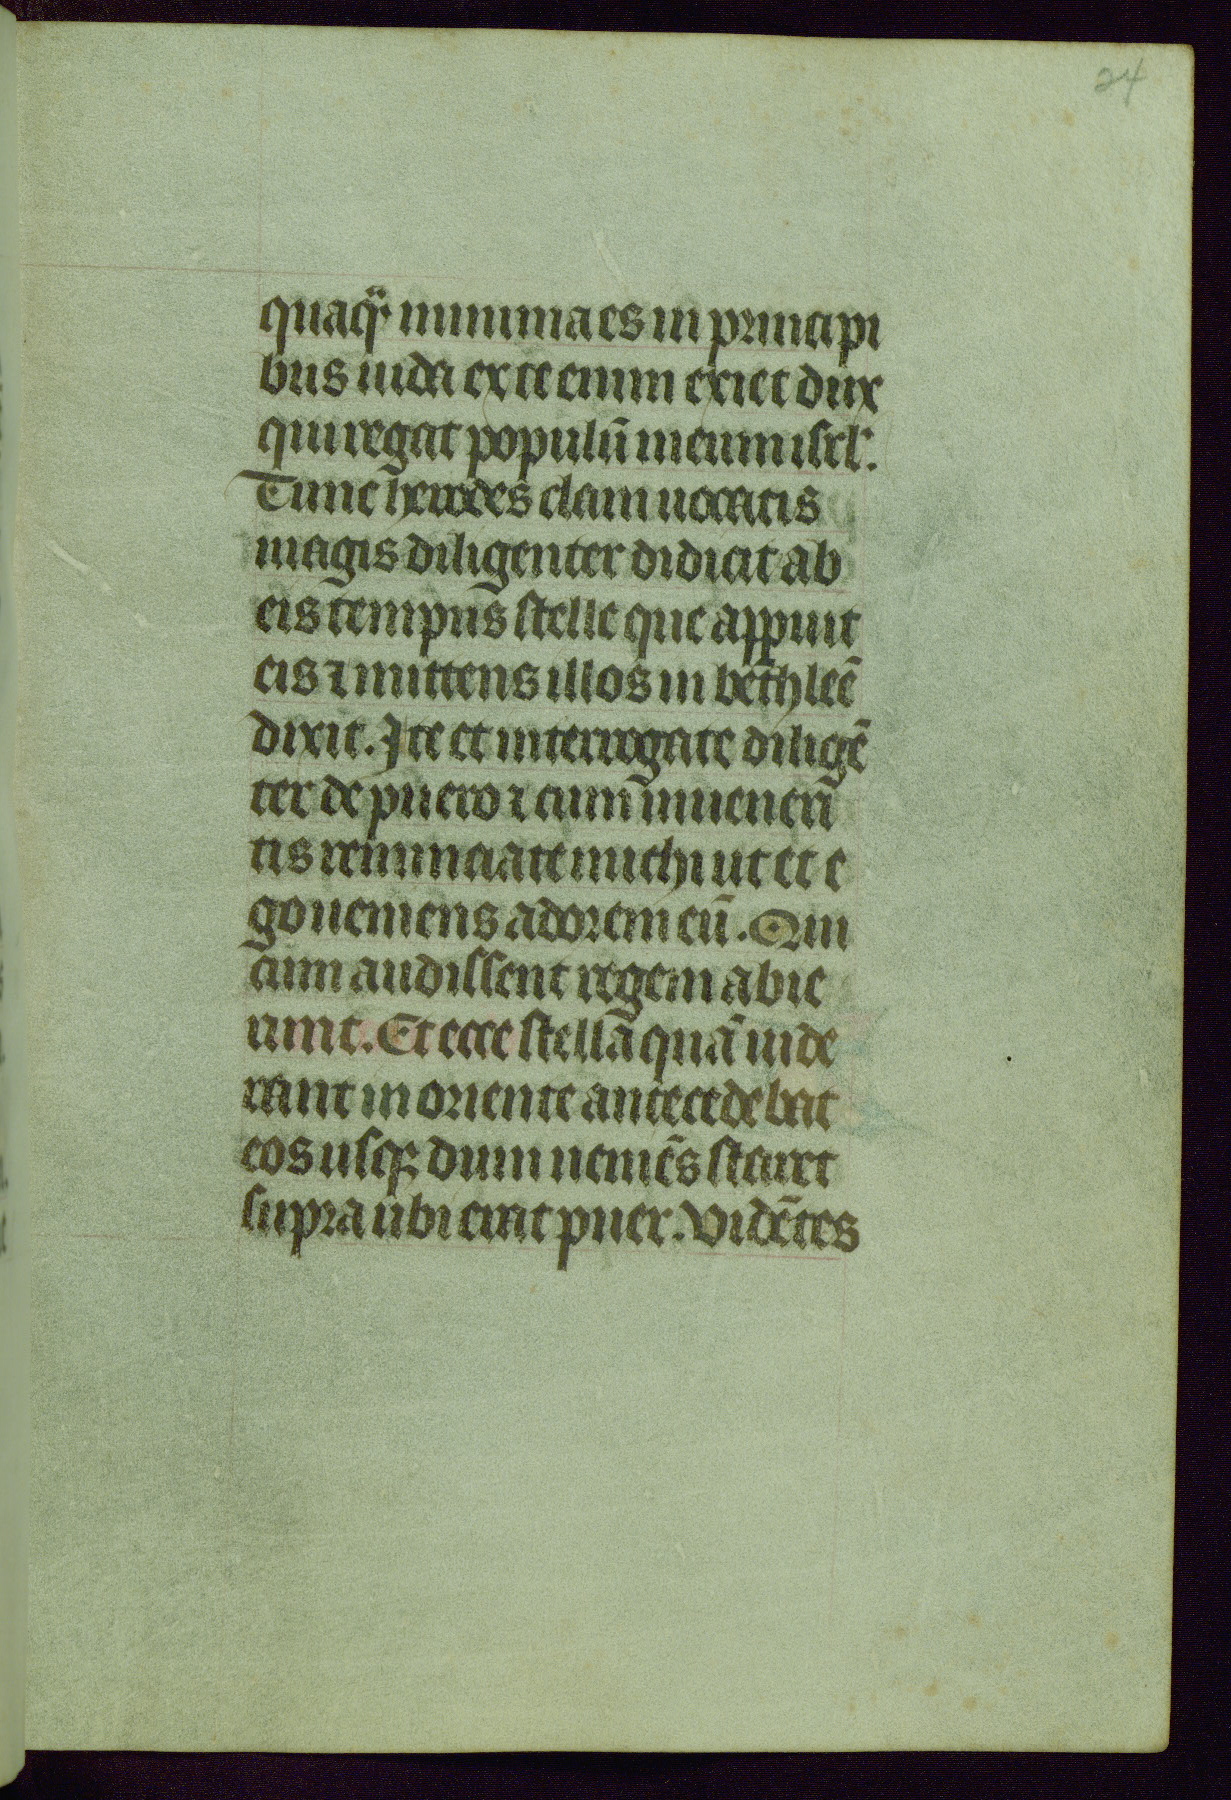 24
quaq̄ minima es in principi
bus iuda ex te enim exiet dux
qui regat populū meum isrl'.
Tunc herodes clam uocatis
magis diligenter didicit ab
eis tempus stelle que appuit
eis ⁊ mittens illos in bethleē
dixit. Ite et interrogate diligē
ter de puero ⁊ cum inueneri
tis renunciate michi ut et e
go ueniens adorem eū. Qui
cum audissent regem abie
runt. Et ecce stella quā uide
rant in oriente antecedebat
eos usqꝫ dum ueniēs staret
supra ubi erat puer. Vidētes